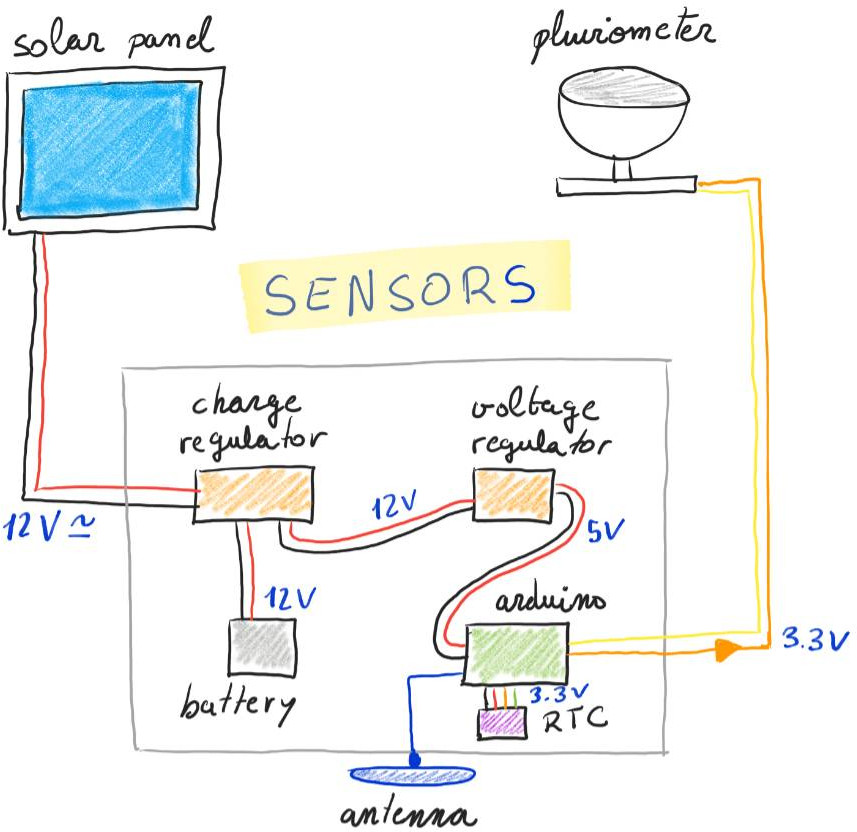 solar panel
pluviometer
SENSORS
charge
regulator
voltage
regulator
12V
12V ≃
5V
12V
arduino
3.3V
3.3V
battery
RTC
antenna